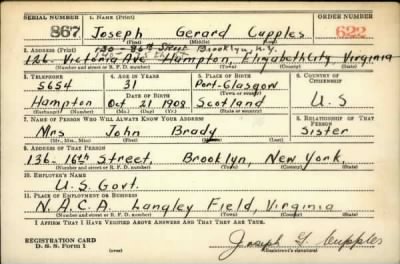 SERIAL NUMBER 1. NAME (Print) ORDER NUMBER
867 Joseph Gerard Cupples 622
(First) (Middle) (Last)
Street Brooklyn, N.Y.
2. ADDRESS (Print)
126 Victoria Ave. Hampton, Elizabeth City, Virginia
(Number and street or R. F. D. number) (Town) (County) (State)
3. TELEPHONE 4. AGE IN YEARS 5. PLACE OF BIRTH 6. COUNTRY OF CITIZENSHIP
5654 31 Port-Glasgow
(Town or county)
DATE OF BIRTH
Hampton Oct 21 1908 Scotland U.S
(Exchange) (Number) (Mo.) (Day) (Yr.) (State or country)
7. NAME OF PERSON WHO WILL ALWAYS KNOW YOUR ADDRESS 8. RELATIONSHIP OF THAT PERSON
Mrs John Brady Sister
(Mr., Mrs., Miss) (First) (Middle) (Last)
9. ADDRESS OF THAT PERSON
136-16th Street, Brooklyn, New York.
(Number and street or R. F. D. number) (Town) (County) (State)
10. EMPLOYER'S NAME
U.S. Govt.
11. PLACE OF EMPLOYMENT OR BUSINESS
N.A.C.A. Langley Field, Virginia
(Number and street or R. F. D. number) (Town) (County) (State)
I AFFIRM THAT I HAVE VERIFIED ABOVE ANSWERS AND THAT THEY ARE TRUE.
REGISTRATION CARD
D. S. S. Form 1 (over) Joseph G Cupples
(Registrant's signature)